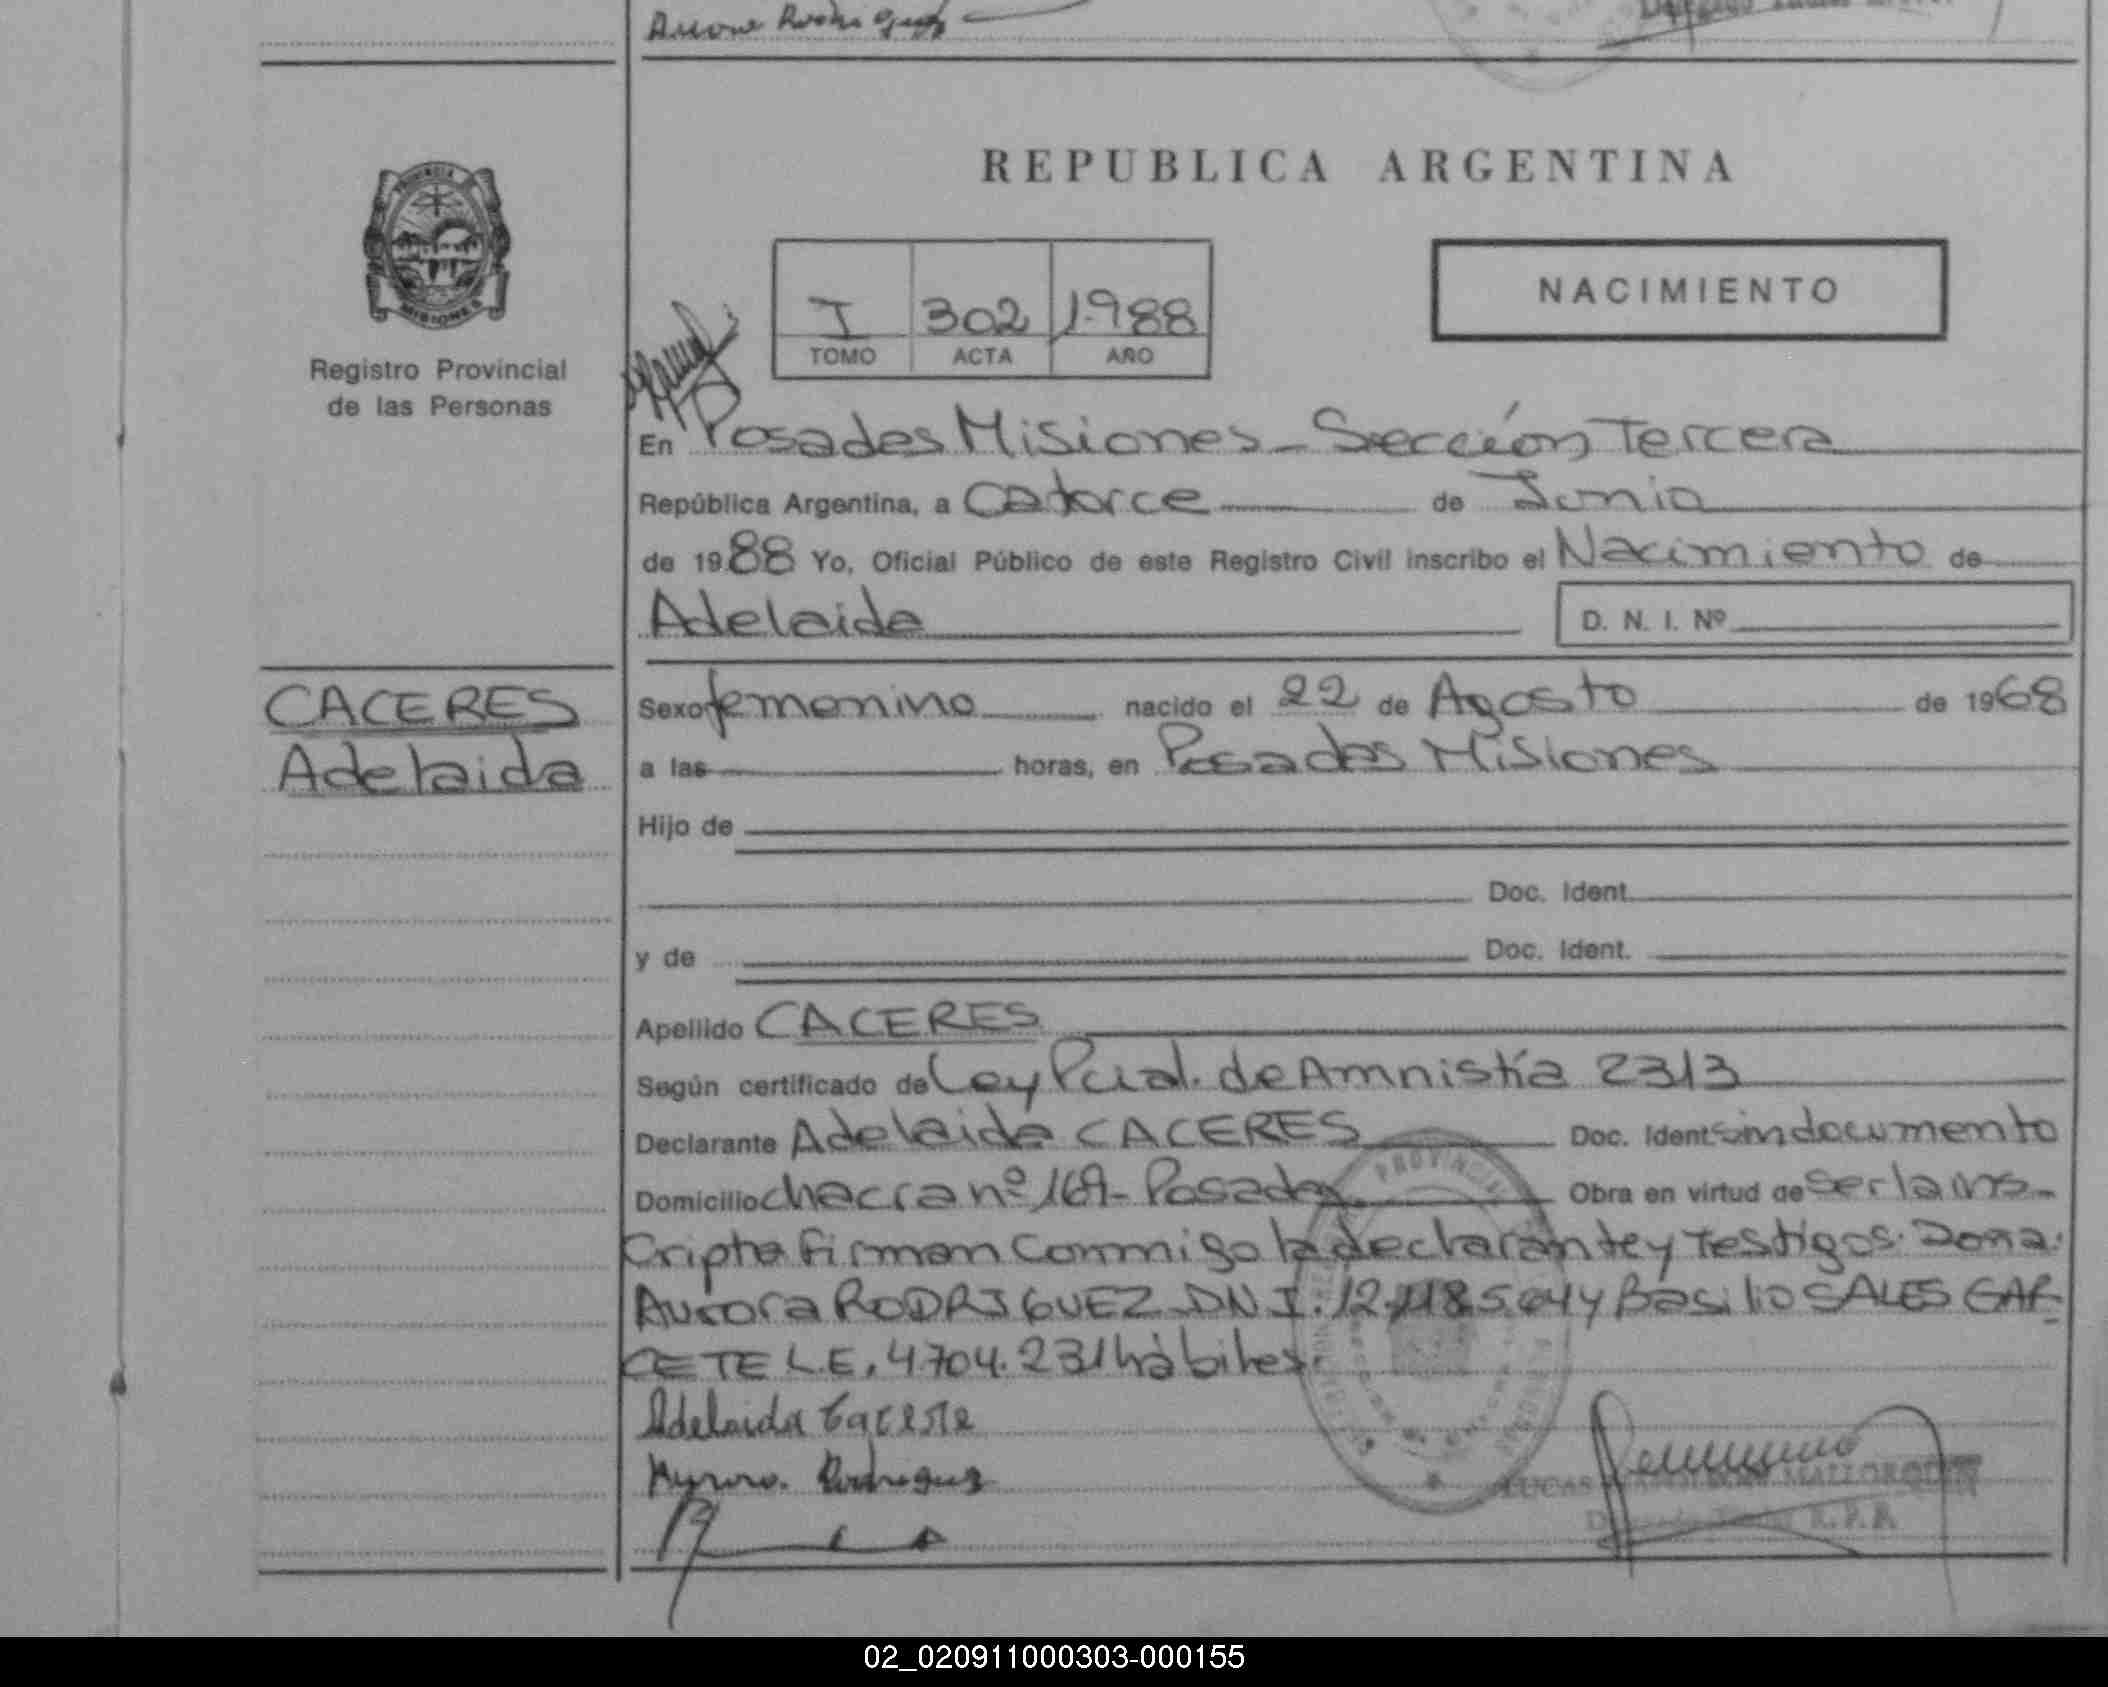 Rodriguez
REPUBLICA ARGENTINA
PROVINCIA
MISIONES
Registro Provincial
de las Personas
I 302 1.988
TOMO ACTA AÑO
NACIMIENTO
En Posadas Misiones - Sección Tercera
República Argentina, a Catorce de Junio
de 1988 Yo, Oficial Público de este Registro Civil inscribo el Nacimiento de
Adelaida D. N. I. Nº
CACERES
Adelaida
Sexo femenino nacido el 22 de Agosto de 1968
a las horas, en Posadas Misiones
Hijo de
Doc. Ident.
y de Doc. Ident.
Apellido CACERES
Según certificado de Ley Pcial. de Amnistía 2313
Declarante Adelaida CACERES Doc. Ident sin documento
Domicilio chacra nº 169 - Posadas. Obra en virtud de ser la ins-
cripta firman conmigo la declarante y testigos: Dona:
Aurora RODRIGUEZ DNI. y Basilio SALES GAR-
CETE L.E. 4704.231 hábiles.
Adelaida
Rodriguez
LUCAS MALLORQUIN
R.P.P.
02_020911000303-000155